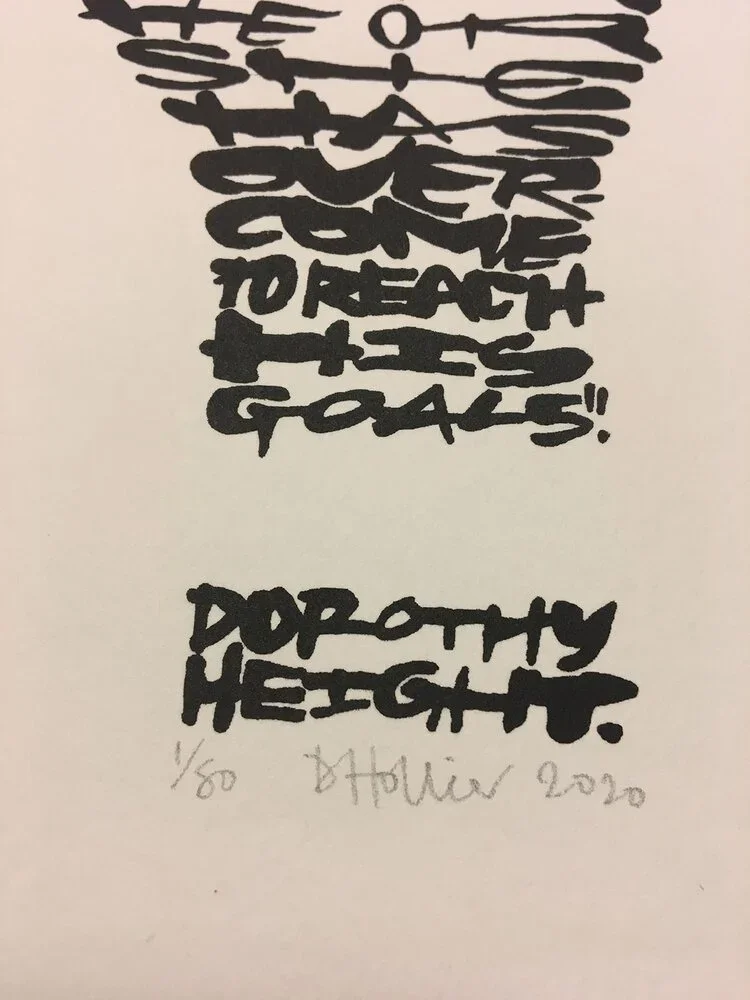 HE OR
HAS
OVER-
COME
TO REACH
HIS
GOALS".
DOROTHY
HEIGHT.
1/80 D Hollier 2020